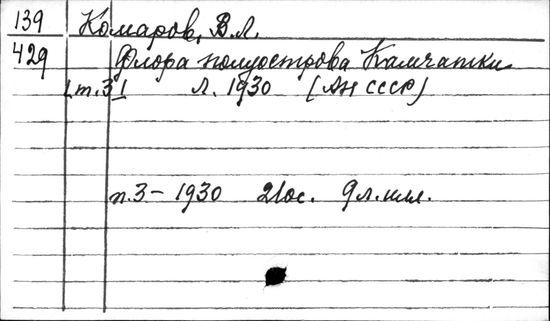 139 Комаров, В.Л.
429 Флора полуострова Камчатки
т.3 Л. 1930 (АН СССР)
т.3 – 1930 210с. 9 л.илл.